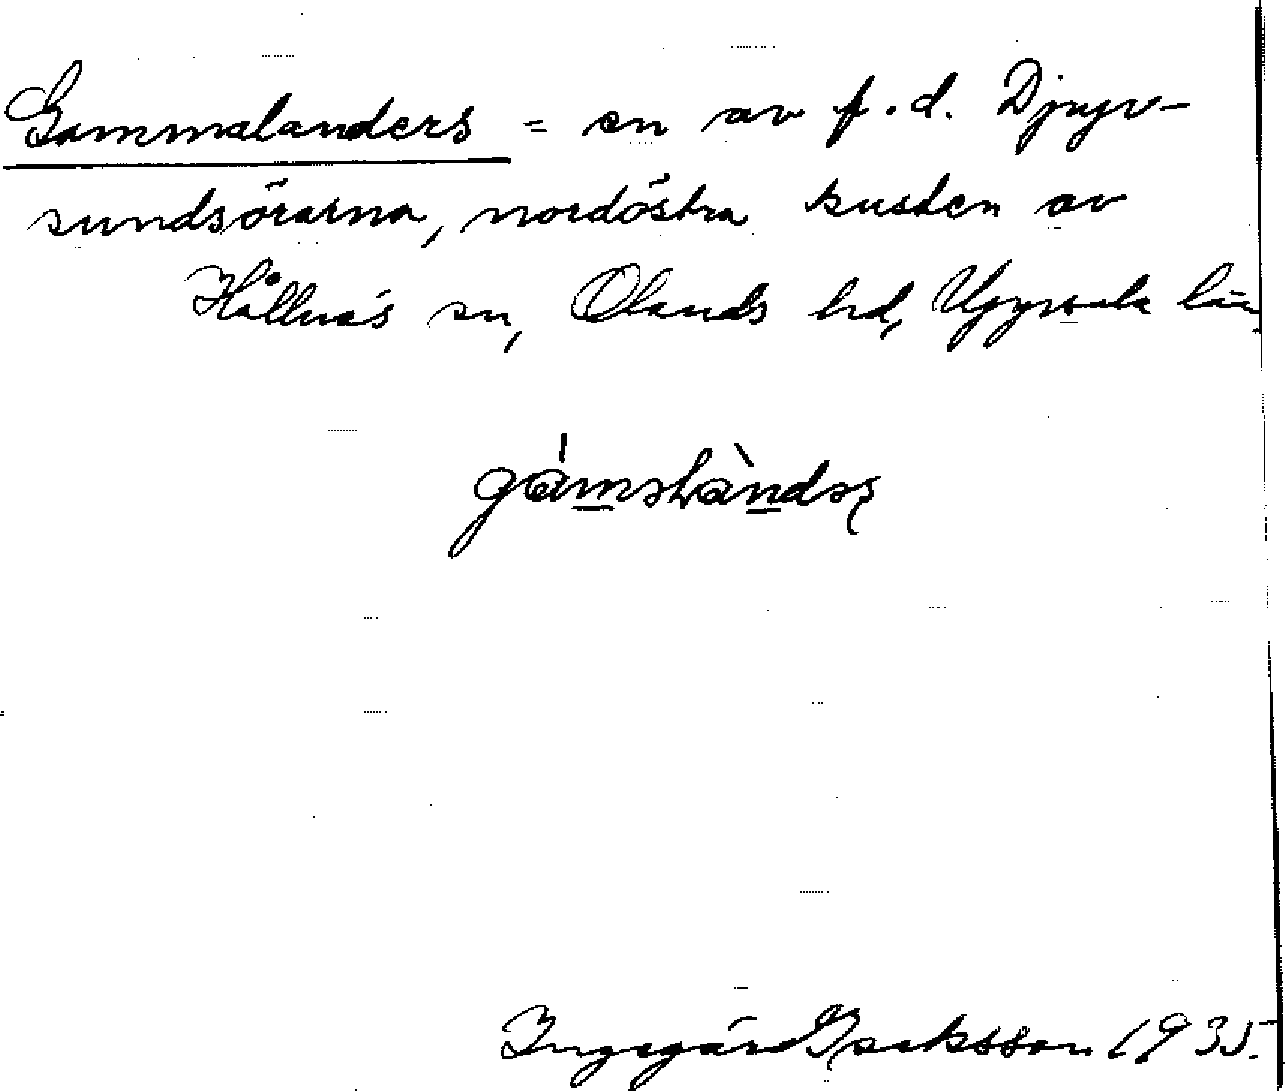 Gammalanders = en av f.d. Djupv-
sundsörarna, nordöstra kusten av
Hållnäs sn, Olands hd, Uppsala län
Ingegärd Isaksson 1935.